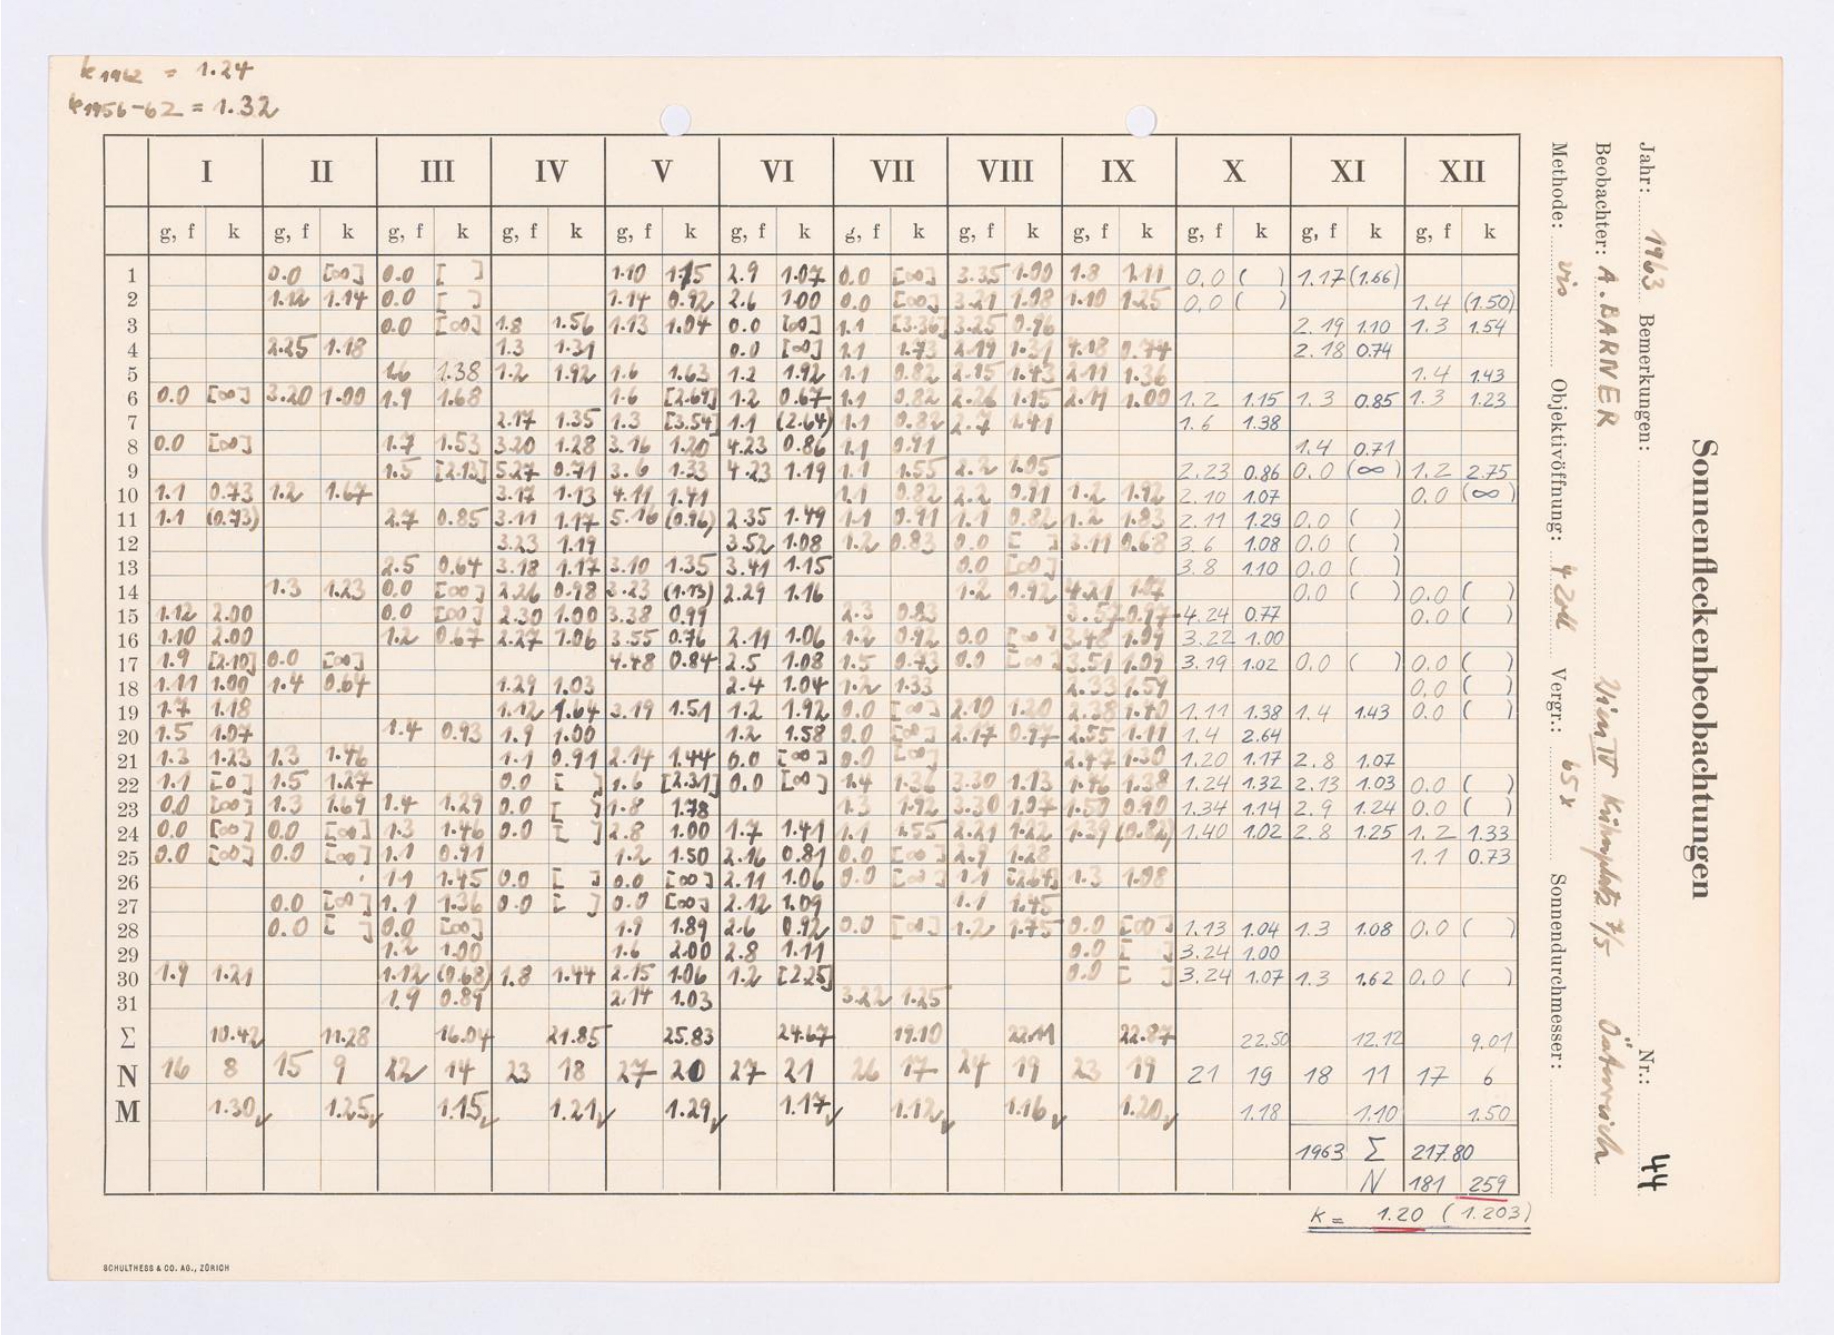 k 1962 = 1.24
k 1956-62 = 1.32
Sonnenfleckenbeobachtungen
Jahr: 1963 Bemerkungen: Nr.: 44
Beobachter: A. BARNER Wien IV 7/5 Österreich
Methode: vis Objektivöffnung: 4 Zoll Vergr.: 65x Sonnendurchmesser:
I II III IV V VI VII VIII IX X XI XII
g, f k g, f k g, f k g, f k g, f k g, f k g, f k g, f k g, f k g, f k g, f k g, f k
1 0.0 [∞] 0.0 [ ] 1.10 1.15 2.9 1.07 0.0 [∞] 3.35 1.00 1.8 1.11 0.0 ( ) 1.17 (1.66)
2 1.12 1.14 0.0 [ ] 1.14 0.92 2.6 1.00 0.0 [∞] 3.21 1.18 1.10 1.25 0.0 ( ) 1.4 (1.50)
3 0.0 [∞] 1.8 1.56 1.13 1.04 0.0 [∞] 1.1 [3.36] 3.25 0.96 2.19 1.10 1.3 1.54
4 2.25 1.18 1.3 1.31 0.0 [∞] 1.1 1.73 2.19 1.31 4.18 0.74 2.18 0.74
5 1.6 1.38 1.2 1.92 1.6 1.63 1.2 1.92 1.1 0.82 2.15 1.43 2.11 1.36 1.4 1.43
6 0.0 [∞] 3.20 1.00 1.9 1.68 1.6 [2.69] 1.2 0.67 1.1 0.82 2.26 1.15 2.11 1.00 1.2 1.15 1.3 0.85 1.3 1.23
7 2.17 1.35 1.3 [3.54] 1.1 (2.64) 1.1 0.82 2.7 1.41 1.6 1.38
8 0.0 [∞] 1.7 1.53 3.20 1.28 3.16 1.20 4.23 0.86 1.1 0.91 1.4 0.71
9 1.5 [2.13] 5.27 0.71 3.6 1.33 4.23 1.19 1.1 1.55 2.2 1.05 2.23 0.86 0.0 (∞) 1.2 2.75
10 1.1 0.73 1.2 1.67 3.17 1.13 4.11 1.41 1.1 0.82 2.2 0.91 1.2 1.92 2.10 1.07 0.0 (∞)
11 1.1 (0.73) 2.7 0.85 3.11 1.17 5.16 (0.96) 2.35 1.49 1.1 0.91 1.1 0.82 1.2 1.83 2.11 1.29 0.0 ( )
12 3.23 1.19 3.52 1.08 1.2 0.83 0.0 [ ] 3.11 0.68 3.6 1.08 0.0 ( )
13 2.5 0.64 3.18 1.17 3.10 1.35 3.41 1.15 0.0 [∞] 3.8 1.10 0.0 ( )
14 1.3 1.23 0.0 [∞] 2.26 0.98 3.23 (1.13) 2.29 1.16 1.2 0.92 4.21 0.0 ( ) 0.0 ( )
15 1.12 2.00 0.0 [∞] 2.30 1.00 3.38 0.99 2.3 0.83 3.57 0.97 4.24 0.77 0.0 ( )
16 1.10 2.00 1.2 0.67 2.27 1.06 3.55 0.76 2.11 1.06 1.2 0.92 0.0 [∞] 3.48 1.09 3.22 1.00
17 1.9 [2.10] 0.0 [∞] 4.48 0.84 2.5 1.08 1.5 0.73 0.0 [∞] 3.51 1.09 3.19 1.02 0.0 ( ) 0.0 ( )
18 1.11 1.00 1.4 0.64 1.29 1.03 2.4 1.04 1.2 1.33 2.33 1.59 0.0 ( )
19 1.7 1.18 1.12 1.64 3.19 1.51 1.2 1.92 0.0 [∞] 2.10 1.20 2.38 1.40 1.11 1.38 1.4 1.43 0.0 ( )
20 1.5 1.07 1.4 0.93 1.9 1.00 1.2 1.58 0.0 [∞] 2.17 0.97 2.55 1.11 1.4 2.64
21 1.3 1.23 1.3 1.46 1.1 0.91 2.14 1.44 0.0 [∞] 0.0 [∞] 2.47 1.30 1.20 1.17 2.8 1.07
22 1.1 [0] 1.5 1.27 0.0 [ ] 1.6 [2.31] 0.0 [∞] 1.4 1.36 3.30 1.13 1.46 1.38 1.24 1.32 2.13 1.03 0.0 ( )
23 0.0 [∞] 1.3 1.69 1.4 1.29 0.0 [ ] 1.8 1.78 1.3 1.92 3.30 1.07 1.50 0.90 1.34 1.14 2.9 1.24 0.0 ( )
24 0.0 [∞] 0.0 [∞] 1.3 1.46 0.0 [ ] 2.8 1.00 1.7 1.41 1.1 1.55 2.21 1.22 1.39 (0.82) 1.40 1.02 2.8 1.25 1.2 1.33
25 0.0 [∞] 0.0 [∞] 1.1 0.91 1.2 1.50 2.16 0.81 0.0 [∞] 2.9 1.28 1.1 0.73
26 1.1 1.45 0.0 [ ] 0.0 [∞] 2.11 1.06 0.0 [∞] 1.1 [2.64] 1.3 1.08
27 0.0 [∞] 1.1 1.36 0.0 [ ] 0.0 [∞] 2.12 1.09 1.1 1.45
28 0.0 [ ] 0.0 [∞] 1.9 1.89 2.6 0.92 0.0 [∞] 1.2 1.75 0.0 [∞] 1.13 1.04 1.3 1.08 0.0 ( )
29 1.2 1.00 1.6 2.00 2.8 1.11 0.0 [ ] 3.24 1.00
30 1.9 1.21 1.12 (0.68) 1.8 1.44 2.15 1.06 1.2 [2.25] 0.0 [ ] 3.24 1.07 1.3 1.62 0.0 ( )
31 1.9 0.89 2.14 1.03 3.22 1.25
Σ 10.42 11.28 16.04 21.85 25.83 24.67 19.10 22.11 22.87 22.50 12.12 9.01
N 16 8 15 9 22 14 23 18 27 20 27 21 26 17 24 19 23 19 21 19 18 11 17 6
M 1.30 1.25 1.15 1.21 1.29 1.17 1.12 1.16 1.20 1.18 1.10 1.50
1963 Σ 217.80
N 181 259
k = 1.20 (1.203)
SCHULTHESS & CO. AG., ZÜRICH